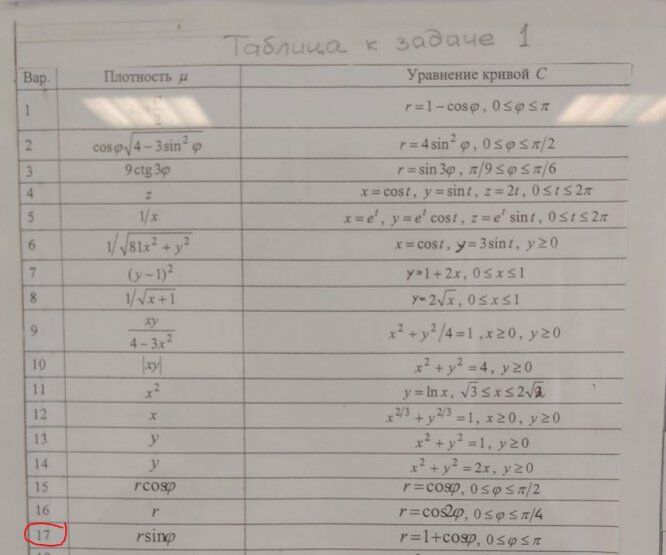 Таблица к задаче 1
Вар. Плотность μ Уравнение кривой C
1 r = 1 − cosφ, 0 ≤ φ ≤ π
2 cosφ√(4 − 3sin² φ) r = 4sin² φ, 0 ≤ φ ≤ π/2
3 9ctg3φ r = sin3φ, π/9 ≤ φ ≤ π/6
4 z x = cost, y = sint, z = 2t, 0 ≤ t ≤ 2π
5 1/x x = eᵗ, y = eᵗ cost, z = eᵗ sint, 0 ≤ t ≤ 2π
6 1/√(81x² + y²) x = cost, y = 3sint, y ≥ 0
7 (y − 1)² y = 1 + 2x, 0 ≤ x ≤ 1
8 1/√(x + 1) y = 2√x, 0 ≤ x ≤ 1
9 xy/(4 − 3x²) x² + y²/4 = 1, x ≥ 0, y ≥ 0
10 |xy| x² + y² = 4, y ≥ 0
11 x² y = lnx, √3 ≤ x ≤ 2√2
12 x x^(2/3) + y^(2/3) = 1, x ≥ 0, y ≥ 0
13 y x² + y² = 1, y ≥ 0
14 y x² + y² = 2x, y ≥ 0
15 rcosφ r = cosφ, 0 ≤ φ ≤ π/2
16 r r = cos2φ, 0 ≤ φ ≤ π/4
17 rsinφ r = 1 + cosφ, 0 ≤ φ ≤ π